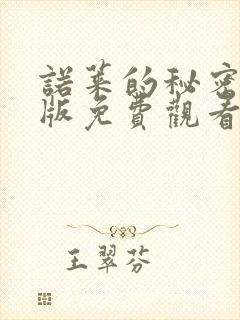 諾萊的秘密
版免費觀看
王翠芬